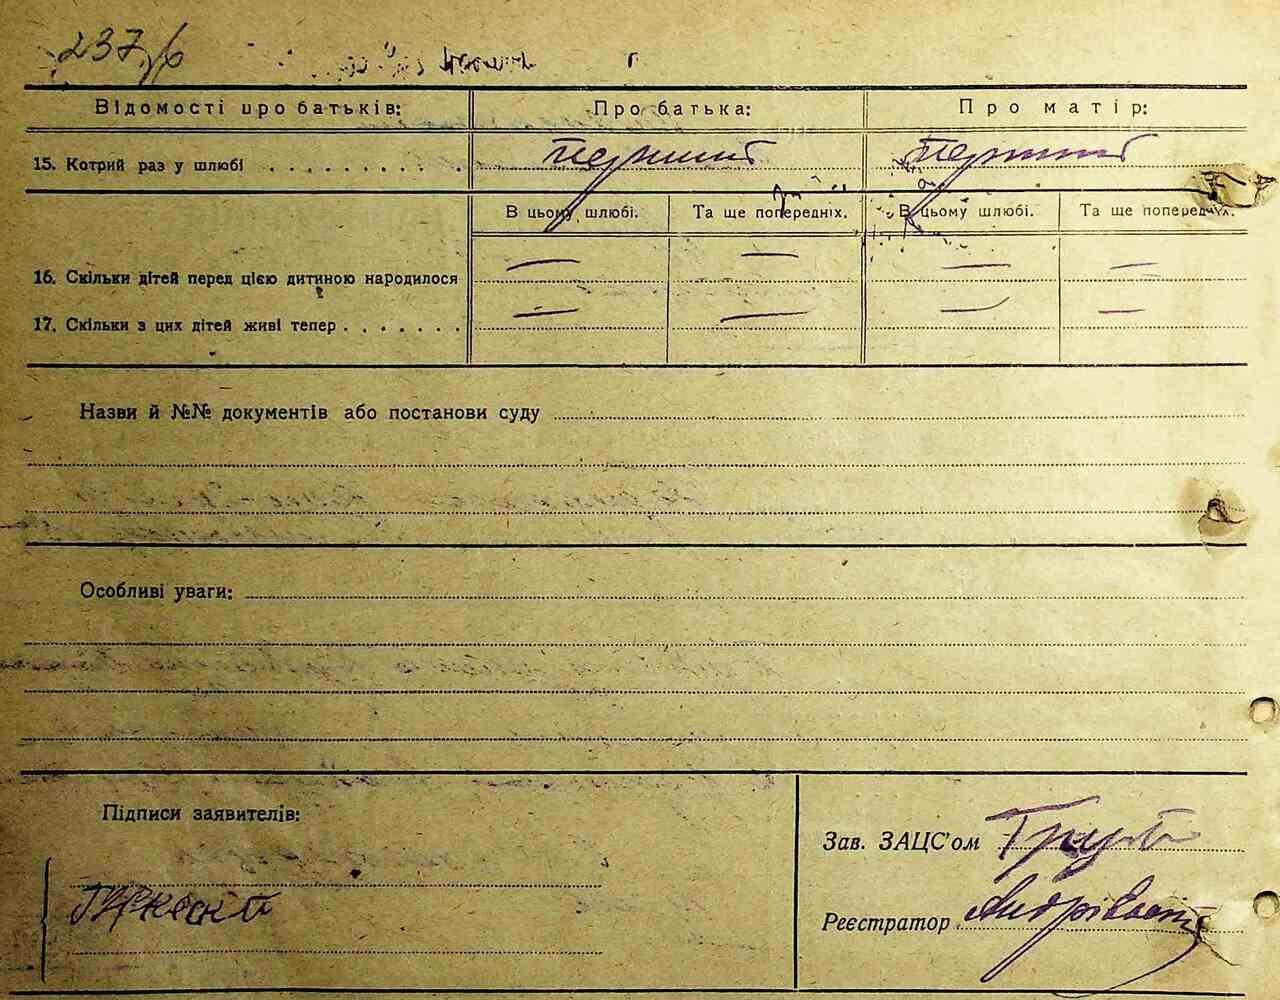 237
Відомості про батьків: Про батька: Про матір:
15. Котрий раз у шлюбі . . . . . . . . . перший перший
В цьому шлюбі. Та ще попередніх. В цьому шлюбі. Та ще попередніх.
16. Скільки дітей перед цією дитиною народилося — — — —
17. Скільки з цих дітей живі тепер . . . . . . . — — — —
Назви й №№ документів або постанови суду
Особливі уваги:
Підписи заявителів:
Зав. ЗАЦС'ом
Реєстратор